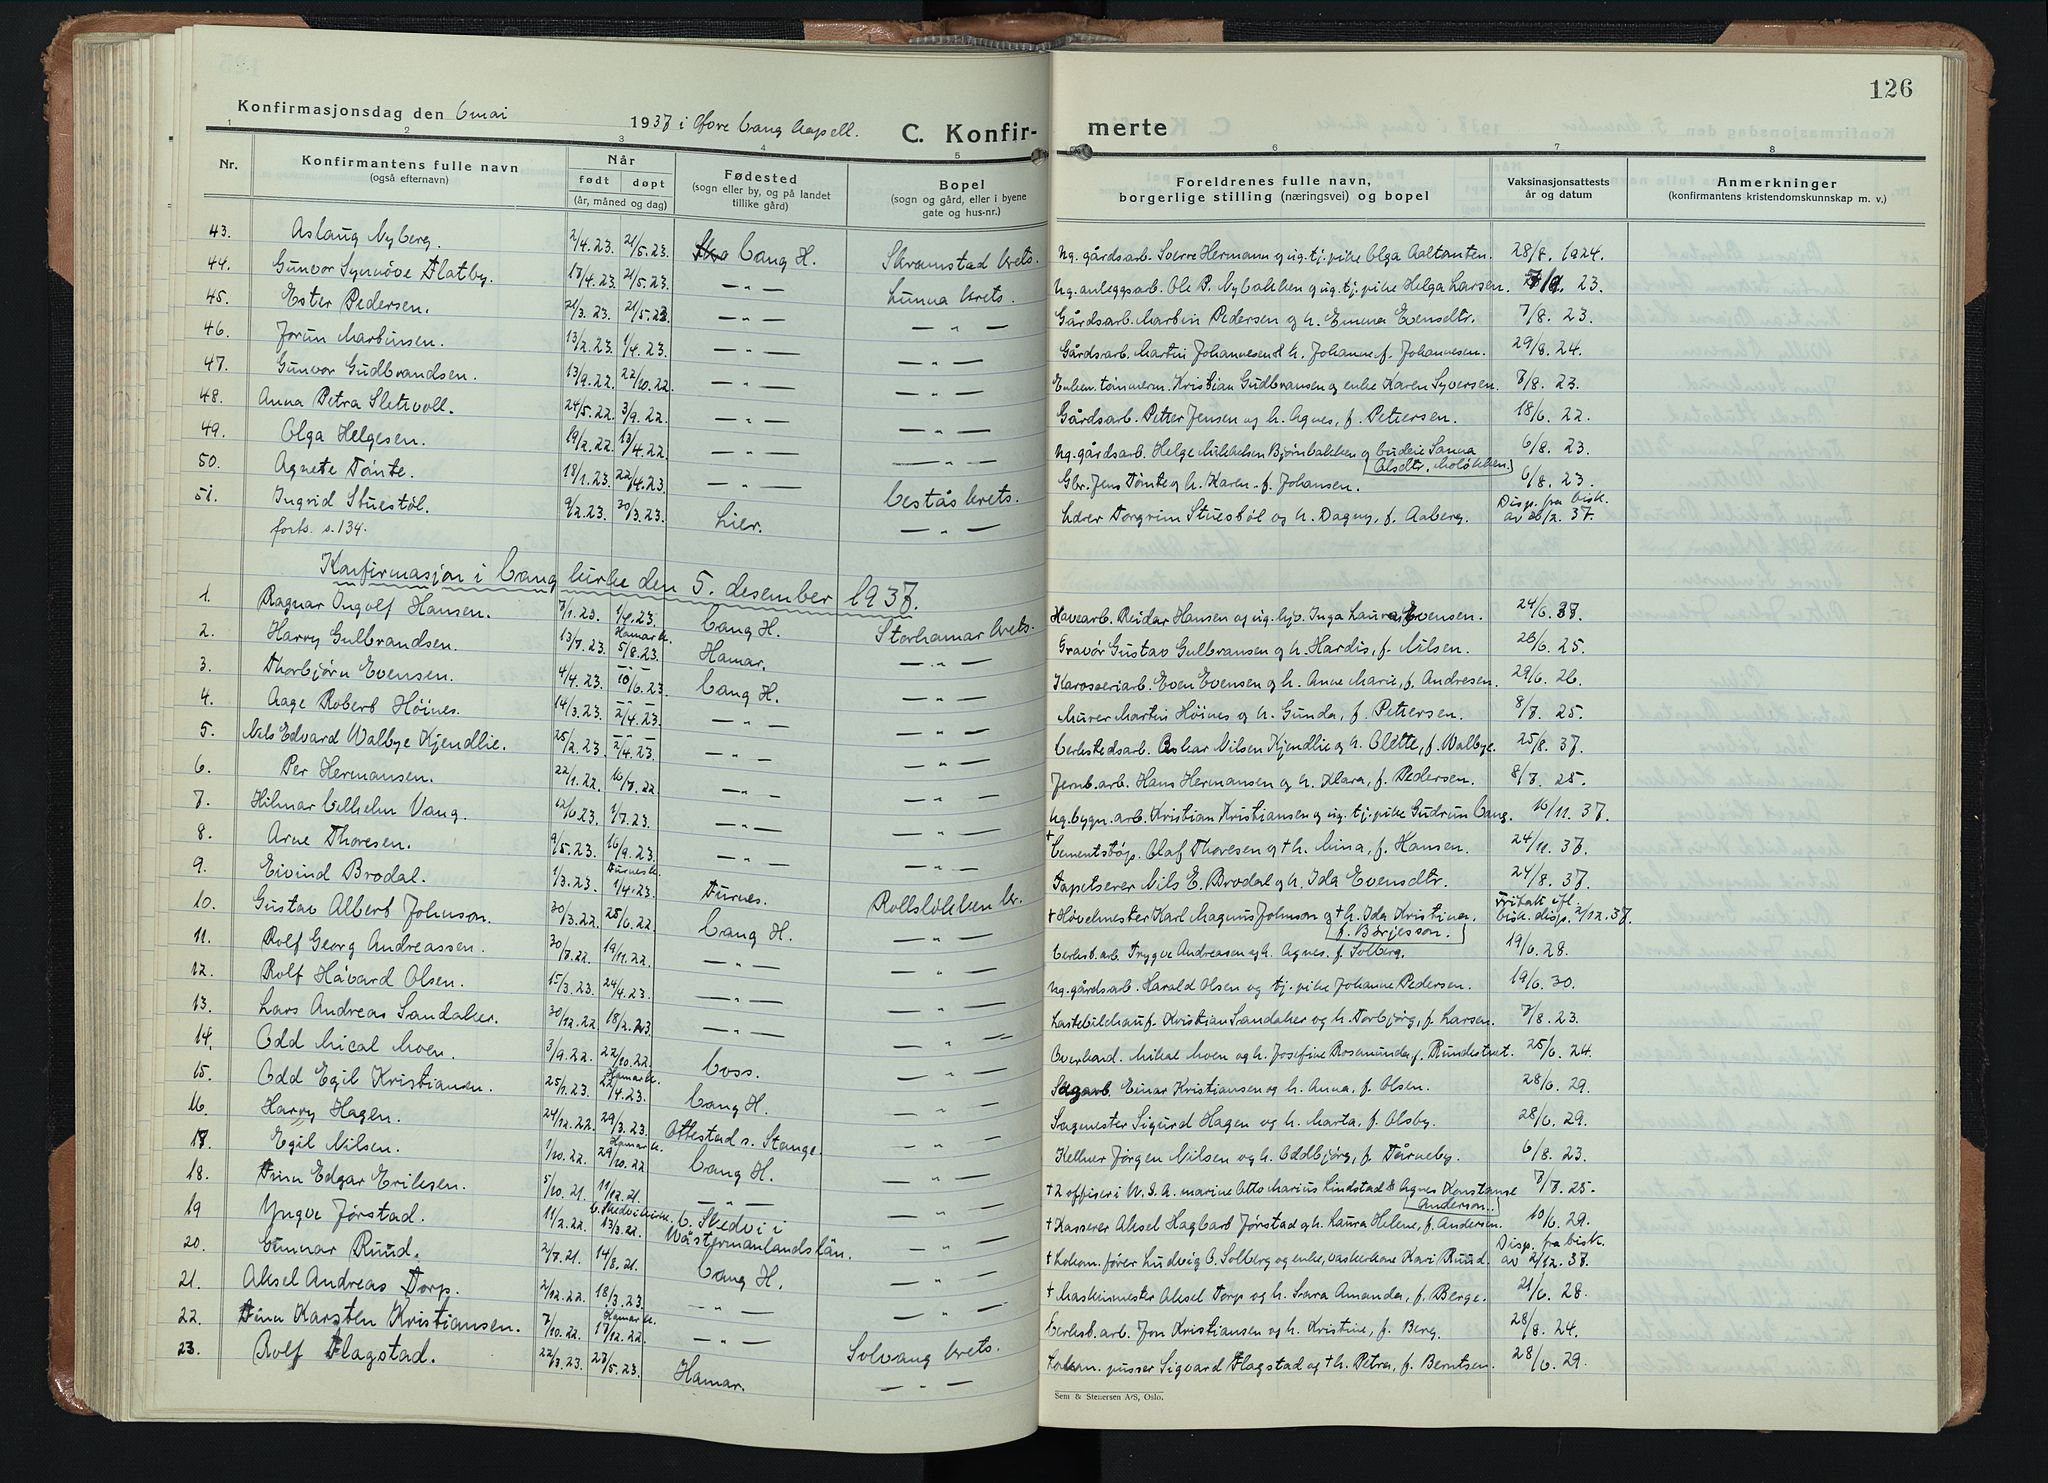 126
Konfirmasjonsdag den 6 mai 1937 i Øvre Vang kapell.
C. Konfir- merte
1 2 3 4 5 6 7 8
Nr.
Konfirmantens fulle navn
(også efternavn)
Når
født døpt
(år, måned og dag)
Fødested
(sogn eller by, og på landet
tillike gård)
Bopel
(sogn og gård, eller i byene
gate og hus-nr.)
Foreldrenes fulle navn,
borgerlige stilling (næringsvei) og bopel
Vaksinasjonsattests
år og datum
Anmerkninger
(konfirmantens kristendomskunnskap m. v.)
43. Aslaug Nyberg. 2/4.23. 21/5.23. Vang H. Skramstad krets. Ug. gårdsarb. Sverre Hermann og ug. tj. pike Olga Aaltanten. 28/8. 1924.
44. Gunvor Synnöve Flatby. 17/4.23. 21/5.23. — " — Lunna krets. Ug. anleggsarb. Ole P. Nybakken og ug. tj. pike Helga Larsen. 7/9. 23.
45. Ester Pedersen. 21/3.23. 21/5.23. — " — — " — Gårdsarb. Martin Pedersen og h. Emma Evensdtr. 7/8. 23.
46. Jorun Martinsen. 13/2.23. 1/4.23. — " — — " — Gårdsarb. Martin Johannesen & h. Johanne f. Johannesen. 29/8. 24.
47. Gunvor Gudbrandsen. 13/9.22. 22/10.22. — " — — " — Enkem. tømmerm. Kristian Gudbransen og enke Karen Syversen. 7/8. 23.
48. Anna Petra Sletvoll. 24/5.22. 3/9.22. — " — — " — Gårdsarb. Petter Jensen og h. Agnes, f. Pettersen. 18/6. 22.
49. Olga Helgesen. 19/2.22. 13/4.22. — " — — " — Ug. gårdsarb. Helge Mikkelsen Bjørnbakken og budeie Sanna 6/8. 23.
[Olsdtr. Moløkken.]
50. Agnete Tönte. 18/1.23. 22/4.23. — " — Vestås krets. Gbr. Jens Tönte og h. Karen f. Johansen. 6/8. 23.
51. Ingrid Stuestöl. 9/2.23. 30/3.23. Lier. — " — Lærer Torgrim Stuestöl og h. Dagny, f. Aaberg. Disp. fra bisk.
av 26/2. 37.
forts. s. 134.
Konfirmasjon i Vang kirke den 5. desember 1937.
1. Ragnar Ingolf Hansen. 7/1.23. 1/4.23. Vang H. Storhamar krets. Havearb. Reidar Hansen og ug. hjv. Inga Laura Evensen. 24/6. 37.
2. Harry Gulbrandsen. 13/7.23. Hamar k. 5/8.23. Hamar. — " — Gravør Gustav Gulbransen og h. Hardis, f. Nilsen. 26/6. 25.
3. Thorbjørn Evensen. 4/4.23. — " — 10/6.23. Vang H. — " — Karosseriarb. Even Evensen og h. Anne Marie, f. Andresen. 29/6. 26.
4. Aage Robert Höines. 14/3.23. — " — 2/4.23. — " — — " — Murer Martin Höines og h. Gunda, f. Pettersen. 8/7. 25.
5. Nils Edvard Walbye Kjendlie. 25/2.23. — " — 2/4.23. — " — — " — Verkstedsarb. Oskar Nilsen Kjendlie og h. Olette, f. Walbye. 25/8. 37.
6. Per Hermansen. 22/1.22. 16/7.22. — " — — " — Jernb. arb. Hans Hermansen og h. Klara, f. Pedersen. 8/7. 25.
7. Hilmar Vilhelm Vang. 12/6.23. 1/7.23. — " — — " — Ug. bygn. arb. Kristian Kristiansen og ug. tj. pike Gudrun Vang. 16/11. 37.
8. Arne Thoresen. 9/5.23. 16/9.23. — " — — " — † Cementstöp. Olaf Thoresen og † h. Mina, f. Hansen. 24/11. 37.
9. Eivind Brodal. 1/3.23. Furnes k. 1/4.23. Furnes. — " — Tapetserer Nils E. Brodal og h. Ida Evensdtr. 24/8. 37.
10. Gustav Albert Johnson. 30/3.22. 25/6.22. Vang H. Rollsløkken kr. † Høvelmester Karl Magnus Johnson og † h. Ida Kristina, Fritatt ifl.
[f. Börjesson.] bisk. disp. 2/12. 37.
11. Rolf Georg Andreassen. 30/7.22. 19/11.22. — " — — " — Verkst. arb. Trygve Andreasen og h. Agnes, f. Solberg. 19/6. 28.
12. Rolf Håvard Olsen. 15/3.23. 24/4.23. — " — — " — Ug. gårdsarb. Harald Olsen og tj. pike Johanne Pedersen. 19/6. 30.
13. Lars Andreas Sandaker. 30/12.22. 18/2.23. — " — — " — Lastebilchauf. Kristian Sandaker og h. Torbjörg, f. Larsen. 7/8. 23.
14. Odd Mical Moen. 3/9.22. 22/10.22. Voss. — " — Overkond. Mikal Moen og h. Josefine Rosemunda, f. Rundestuet. 25/6. 24.
15. Odd Egil Kristiansen. 25/1.23. Hamar k. 22/4.23. Vang H. — " — Sagarb. Einar Kristiansen og h. Anna, f. Olsen. 28/6. 29.
16 Harry Hagen. 24/12.22. 29/3.23. Ottestad s. Stange. — " — Sagmester Sigurd Hagen og h. Marta, f. Olsby. 28/6. 29.
17. Egil Nilsen. 1/10.22. Hamar k. 29/10.22 Vang H. — " — Kellner Jørgen Nilsen og h. Oddbjörg, f. Tårneby. 6/8. 23.
18. Finn Edgar Eriksen. 5/10.21. 11/12.21. — " — — " — † 2 officer i U.S.A. marine Otto Marius Lindstad & Agnes Konstanse 7/7. 25.
[Anderson.]
19 Yngve Jørstad. 11/2.22. V. Skedvi kirke. 13/3.22. V. Skedvi i — " — † Kasserer Aksel Hagbart Jørstad og h. Laura Helene, f. Andersen. 10/6. 29.
Västermanlandslän.
20. Gunnar Ruud. 2/7.21. 14/8.21. Vang H. — " — † Lokom. fører Ludvig O. Solberg og enke, vaskerkone Kari Ruud. Disp. fra bisk.
av 2/12. 37.
21. Aksel Andreas Torp. 2/12.22. 18/3.23. — " — — " — † Maskinmester Aksel Torp og h. Sara Amanda, f. Berge. 21/6. 28.
22. Finn Karsten Kristiansen. 7/10.22. Hamar k. 17/12.22. — " — Solvang krets. Verkst. arb. Jon Kristiansen og h. Kristine, f. Berg. 28/8. 24.
23. Rolf Flagstad. 22/3.23. 27/5.23. Hamar. — " — Lokom. pusser Sigvard Flagstad og † h. Petra, f. Berntsen. 28/6. 29.
Sem & Stenersen A/S, Oslo.